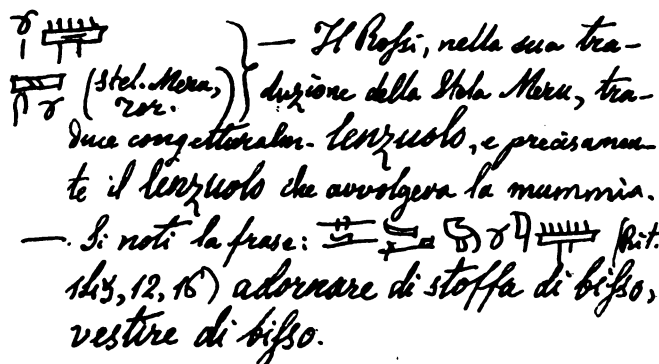 — Il Rossi, nella sua tra-
(Stel. Meru, duzione della Stela Meru, tra-
duce congetturalm. lenzuolo, e precisamen-
te il lenzuolo che avvolgeva la mummia.
— Si noti la frase: (Rit.
12, 16) adornare di stoffa di bisso,
vestire di bisso.